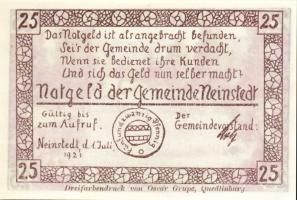 25 25
Das Notgeld ist als angebracht befunden,
Sei's der Gemeinde drum verdacht,
Wenn sie bedienet ihre Kunden
Und sich das Geld nun selber macht?
Notgeld der Gemeinde Neinstedt
Gültig bis
zum Aufruf.
Neinstedt, d. 1 Juli
1921
Fünfundzwanzig Pfennig
Der
Gemeindevorstand:
25 25
Dreifarbendruck von Oscar Grupe, Quedlinburg